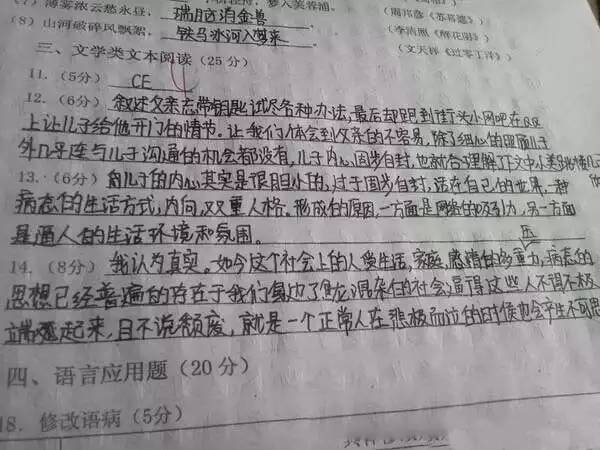 (7) 薄雾浓云愁永昼，瑞脑消金兽
(8) 山河破碎风飘絮，铁马冰河入梦来
(周邦彦《苏幕遮》)
(李清照《醉花阴》)
(文天祥《过零丁洋》)
三、文学类文本阅读（25分）
11.（5分） CE
12.（6分） 叙述父亲忘带钥匙试尽各种办法，最后却跑到街头小网吧在QQ
上让儿子给他开门的情节。让我们体会到父亲的不容易，除了细心的照顾儿子
外几乎连与儿子沟通的机会都没有，儿子内心固步自封，也就合理解了文中小
13.（6分） 儿子的内心其实是很胆小的，过于固步自封，活在自己的世界，一种
病态的生活方式，内向，双重人格。形成的原因，一方面是网络的吸引力，另一方面
是逼人的生活环境和氛围。
14.（8分） 我认为真实。如今这个社会上的人受生活，家庭，感情的多重压力，病态的
思想已经普遍的存在于我们身边了，龙混杂的社会逼得这些人不得不极
端起来，且不说颓废，就是一个正常人在悲极而泣的时候也会产生不可思
四、语言应用题（20分）
18. 修改语病（5分）